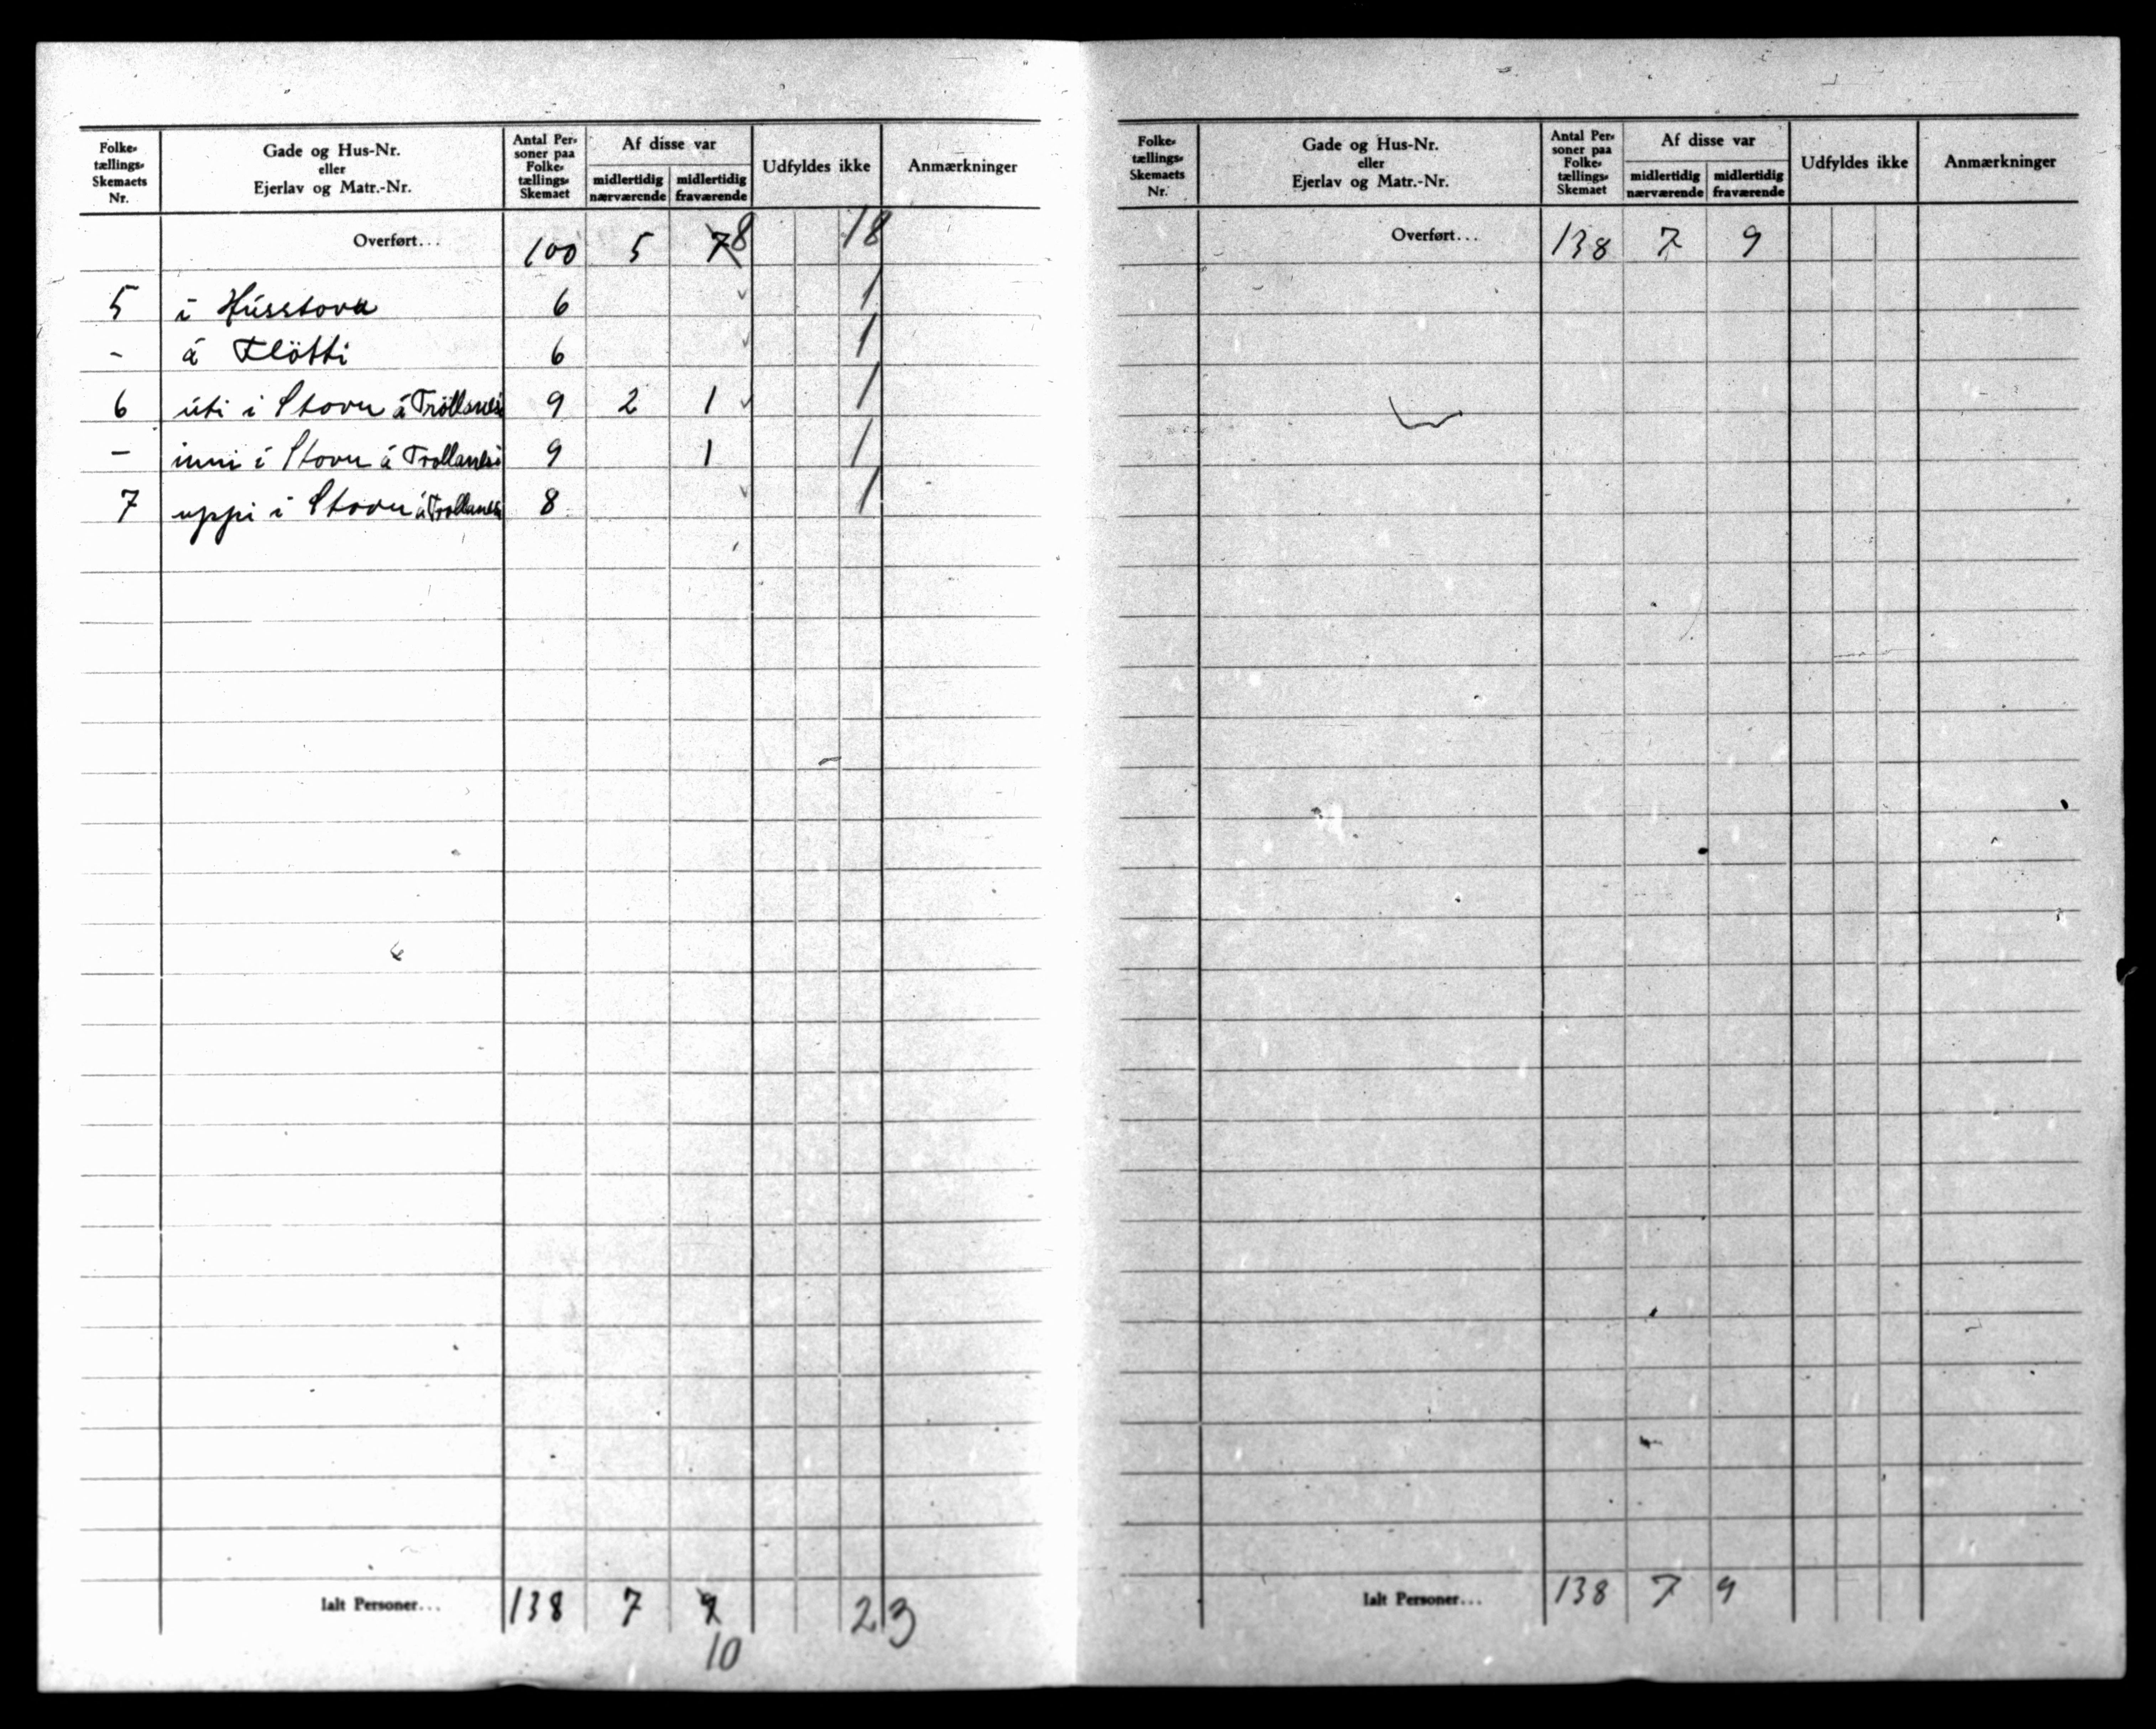 Folke-
tællings-
Skemaets
Nr.
Gade og Hus-Nr.
eller
Ejerlav og Matr.-Nr.
Antal Per-
soner paa
Folke-
tællings-
Skemaet
Af disse var
midlertidig
nærværende
midlertidig
fraværende
Udfyldes ikke
Anmærkninger
Overført... 100 5 7 8 18
5 i Hússtova 6 1
- á Flötti 6 1
6 úti i Stovu á Tröllanesi 9 2 1 1
- inni í Stovu á Trollanesi 9 1 1
7 uppi i Stovu á Trollanesi 8 1
Ialt Personer... 138 7 9 23
10
Folke-
tællings-
Skemaets
Nr.
Gade og Hus-Nr.
eller
Ejerlav og Matr.-Nr.
Antal Per-
soner paa
Folke-
tællings-
Skemaet
Af disse var
midlertidig
nærværende
midlertidig
fraværende
Udfyldes ikke
Anmærkninger
Overført... 138 7 9
Ialt Personer... 138 7 9